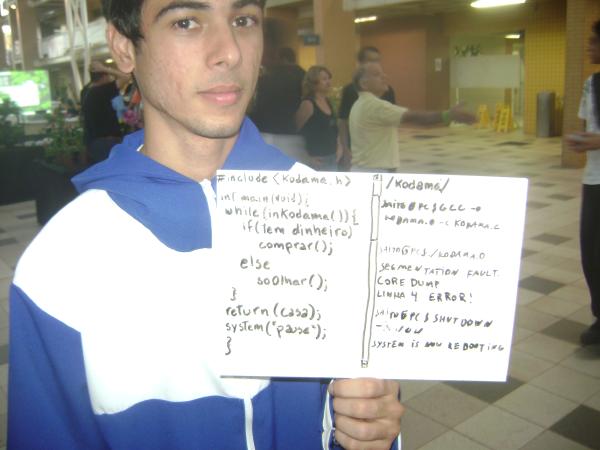 #include <Kodama.h>
int main(void){
while(inKodama()){
if(tem dinheiro)
comprar();
else
soOlhar();
}
return(casa);
system("pause");
}
/Kodama/
SAITO@PC$ GCC -o
KODAMA.O -C KODAMA.C
SAITO@PC$ ./KODAMA.O
SEGMENTATION FAULT.
CORE DUMP
LINHA 4 ERROR!
SAITO@PC$ SHUTDOWN
SYSTEM IS NOW REBOOTING